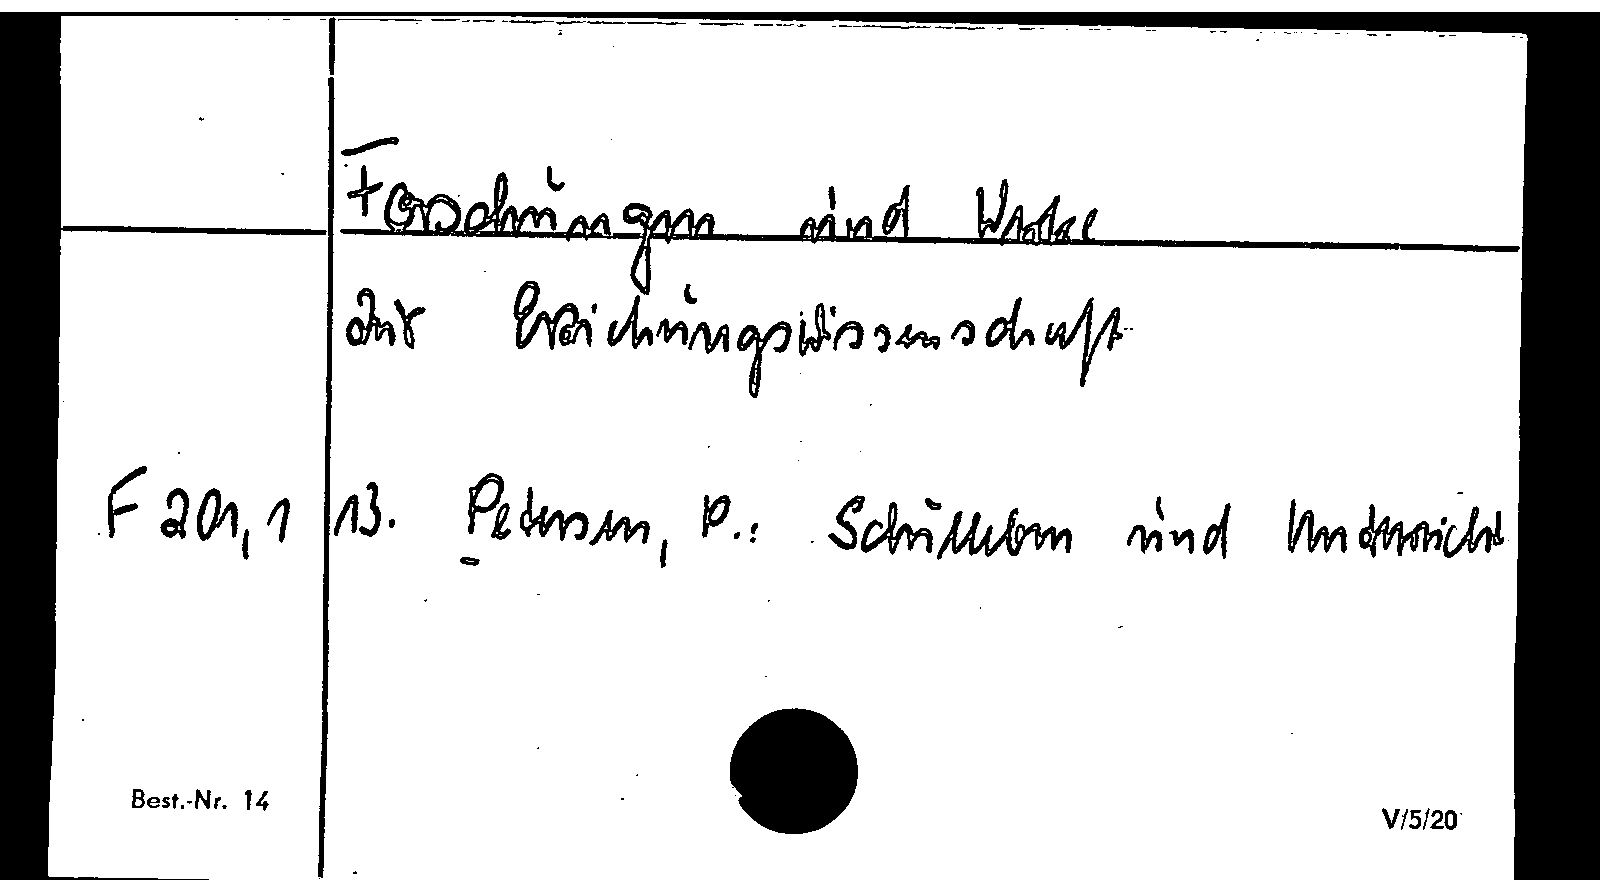 Forschungen und Werke
zur Erziehungswissenschaft
F 201,1 13. Petersen, P.: Schulleben und Unterricht
Best.-Nr. 14
V/5/20